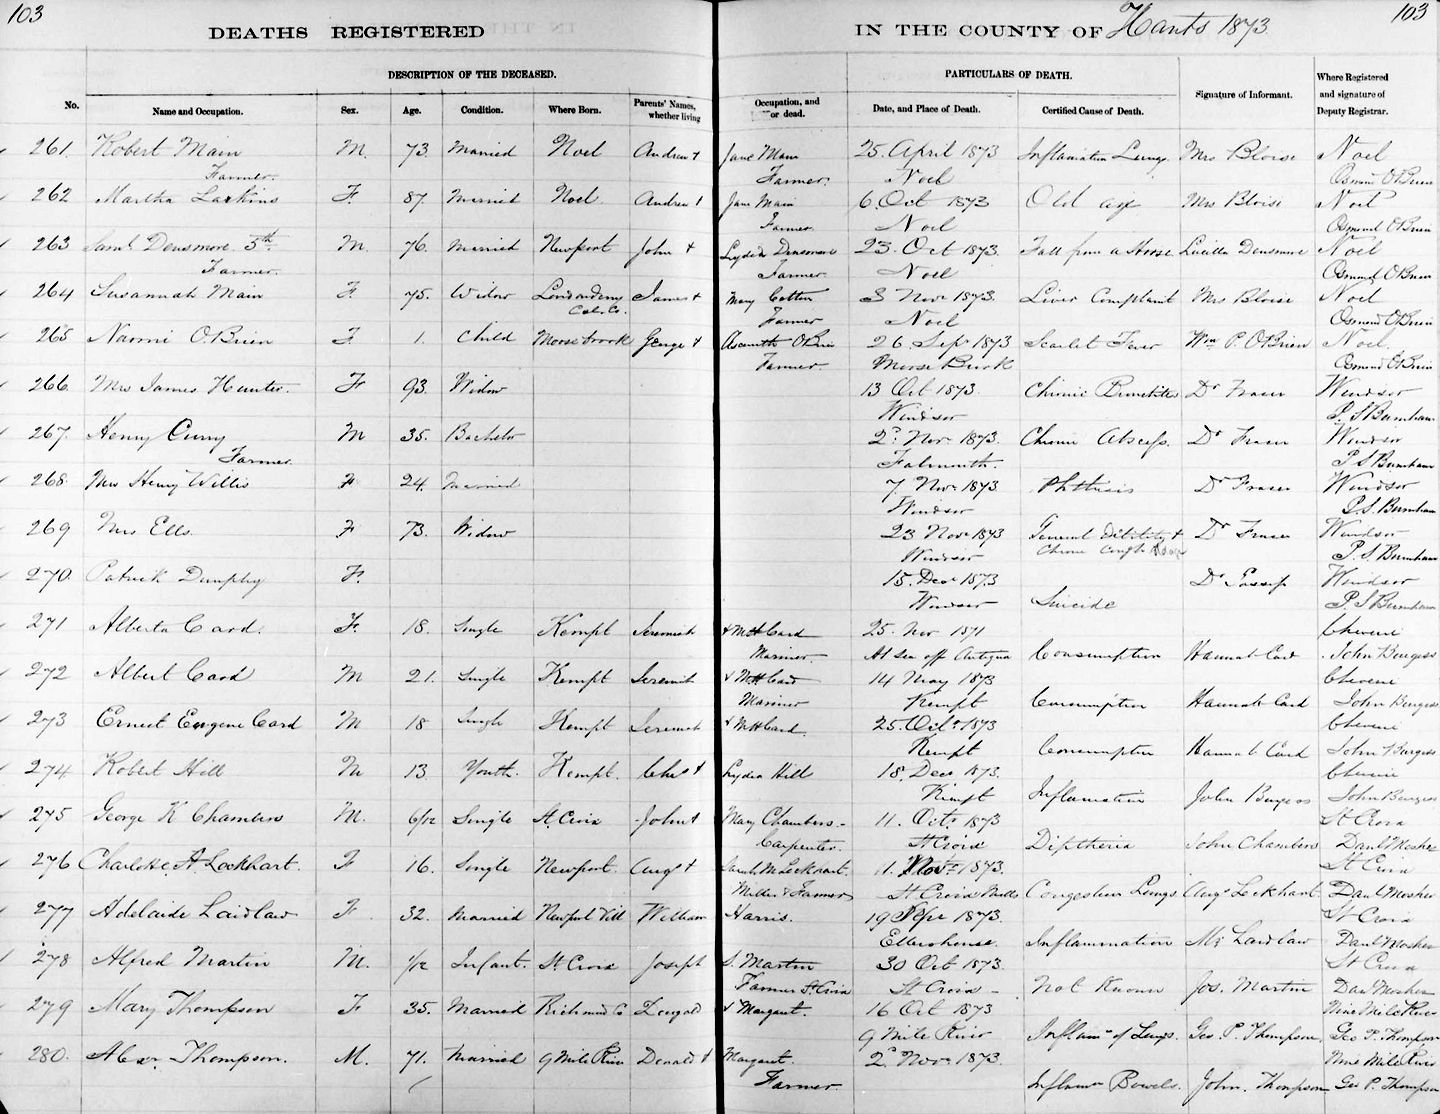 103
DEATHS REGISTERED
IN THE COUNTY OF Hants 1873
103
DESCRIPTION OF THE DECEASED.
PARTICULARS OF DEATH.
No.
Name and Occupation.
Sex.
Age.
Condition.
Where Born.
Parents' Names, whether living
Occupation, and or dead.
Date, and Place of Death.
Certified Cause of Death.
Signature of Informant.
Where Registered and signature of Deputy Registrar.
261. Robert Main M. 73. Married Noel Andrew + Jane Main 25. April 1873 Inflamation Lungs Mrs Bloise Noel
Farmer. Farmer. Noel Osmond O'Brien
262 Martha Larkins F. 87. Married Noel. Andrew + Jane Main 6. Oct 1873 Old age Mrs Bloise Noel
Farmer. Noel Osmond O'Brien
263 Saml Densmore 5th M. 76. Married Newport John + Lydia Densmore 23. Oct 1873 Fall from a Horse. Lucilla Densmore Noel
Farmer. Farmer. Noel Osmond O'Brien
264 Susannah Main F. 75. Widow Londonderry James + Mary Cotten 3 Novr 1873. Liver Complaint Mrs Bloise Noel
Col. Co. Farmer Noel Osmond O'Brien
265 Naomi O'Brien F 1. Child Moosebrook George + O'Brien 26. Sept 1873 Scarlet Fever Wm P. O'Brien Noel.
Farmer Moose Brook Osmond O'Brien
266. Mrs James Hunter. F 93. Widow 13 Oct. 1873. Chronic Bronchitis Dr Fraser Windsor
Windsor P. S Burnham
267. Henry Curry M 35. Bachelor 2d Novr 1873. Chronic Abscess. Dr Fraser Windsor
Farmer. Falmouth. P. S Burnham
268. Mrs Henry Willis F 24. Married 7 Novr 1873 Phthisis Dr Fraser Windsor
Windsor P. S. Burnham
269 Mrs Ells. F 73. Widow 23 Novr 1873 General Debility + Dr Fraser Windsor
Windsor Chronic Cough P. S. Burnham
270. Patrick Dunphy F. 15. Decr 1873 Dr Windsor
Windsor Suicide P. S Burnham
271 Alberta Card. F. 18. Single Kempt Jeremiah + M H Card 25. Nov 1871 Cheverie
Mariner. At sea off Antigua Consumption Hannah Card John Burgess
272 Albert Card M 21. Single Kempt Jeremiah + M H Card 14 May 1873 Cheverie
Mariner Kempt Consumption Hannah Card John Burgess
273 Ernest Eugene Card M 18 Single Kempt Jeremiah + M H Card. 25. Octr 1873 Cheverie
Kempt Consumption Hannah Card John Burgess
274 Robert Hill M 13 Youth. Kempt. Chas + Lydia Hill 18. Decr 1873. Cheverie
Kempt Inflamation John Burgess John Burgess
275 George K Chambers M. 6/12 Single St. Croix John + Mary Chambers. 11. Octr 1873 St Croix
Carpenter. St Croix Diptheria John Chambers Danl Mosher
276 Charlotte A Lockhart. F 16. Single Newport. Augs + Sarah M Lockhart. 11. Novr 1873. St Croix
Miller & Farmer St Croix Mills Congestion Lungs Augs Lockhart. Danl Mosher
277 Adelaide Laidlaw F. 32. Married Newport Vill William Harris. 19 Sepr 1873. St Croix
Ellershouse. Inflammation Mr Laidlaw Danl Mosher
278 Alfred Martin M. 1/12 Infant. St. Croix Joseph S. Martin 30 Oct 1873. St Croix
Farmer St Croix St Croix Not Known Jos. Martin Danl Mosher
279 Mary Thompson F 35. Married Richmond Co + Margaret. 16 Oct 1873 Nine Mile River
9 Mile River Inflamn of Lungs. Geo P. Thompson. Geo P. Thompson
280. Alexr Thompson. M. 71. Married 9 Mile River Donald + Margaret. 2d Novr 1873. Nine Mile River
Farmer. Inflamn Bowels. John. Thompson Geo P. Thompson